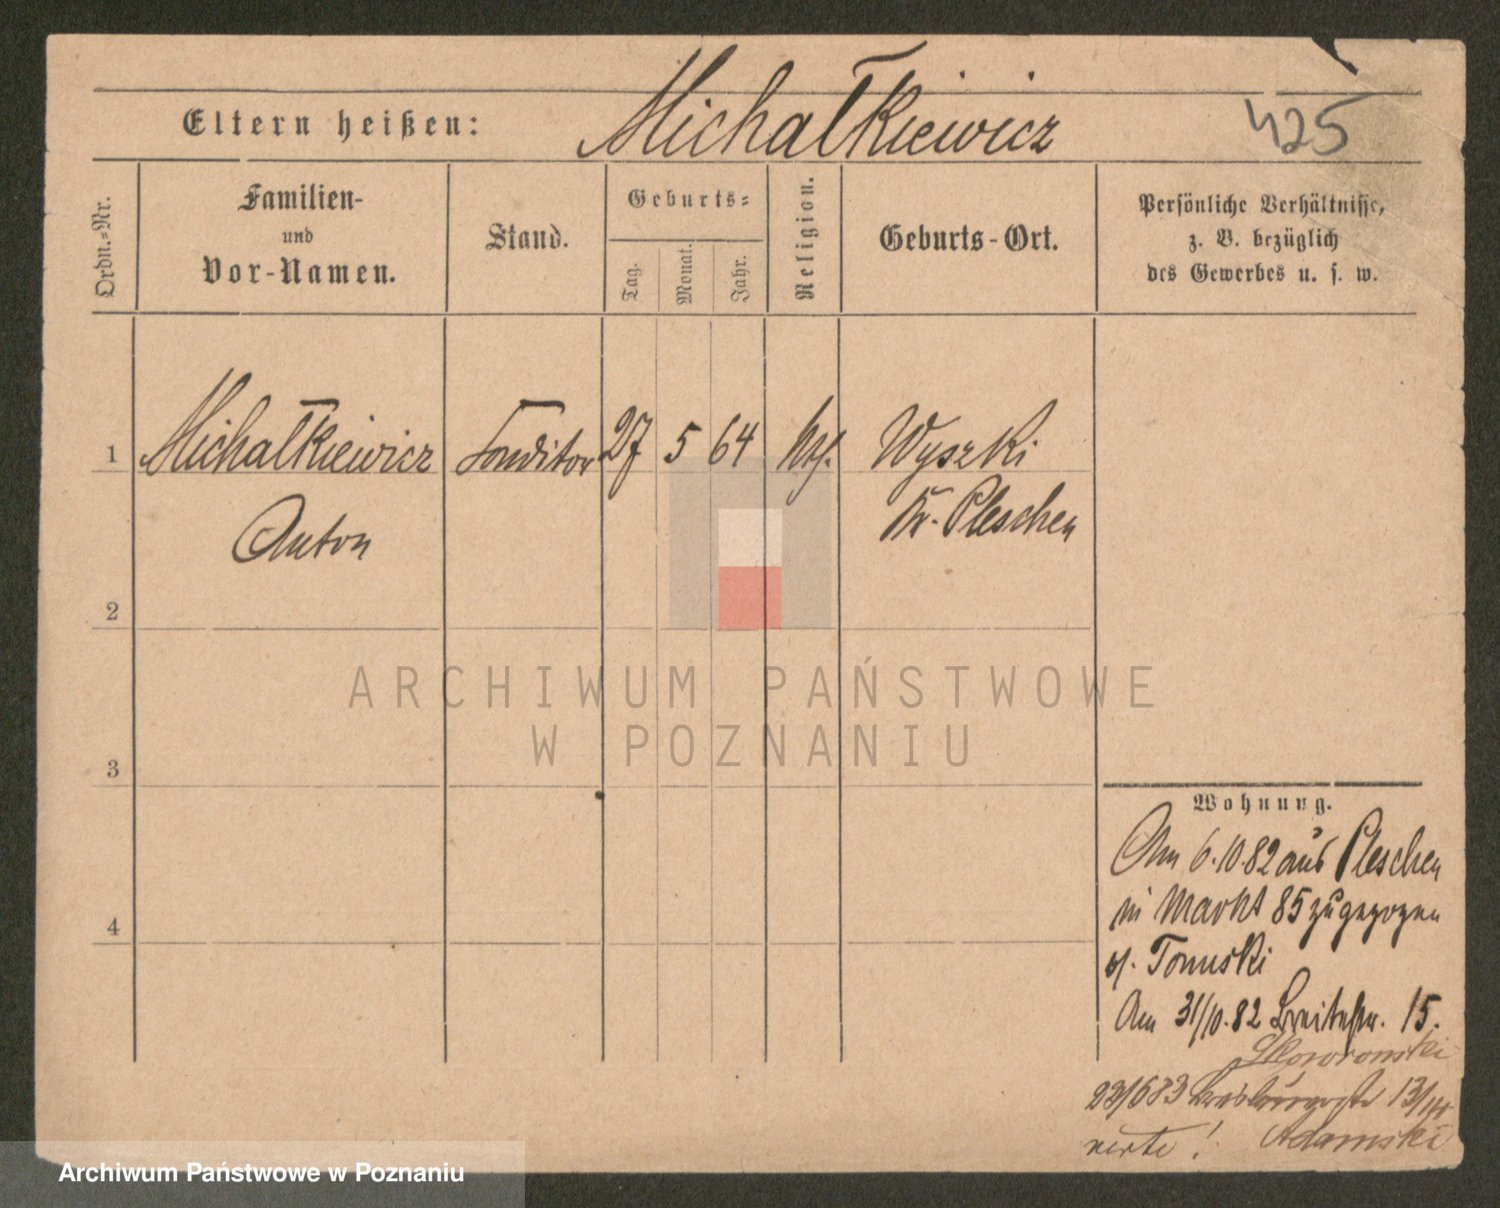 Eltern heißen: Michałkiewicz 425
Ordn.-Nr.
Familien-
und
Vor-Namen.
Stand.
Geburts-
Tag.
Monat.
Jahr.
Religion.
Geburts-Ort.
Persönliche Verhältnisse,
z. B. bezüglich
des Gewerbes u. s. w.
1 Michałkiewicz 27 5 64 Wyszki
Anton Kr. Pleschen
2
3
4
ARCHIWUM PAŃSTWOWE
W POZNANIU
Wohnung.
Am 6.10.82 aus Pleschen
in Markt 85 zugezogen
Tomski
Am 31/10.82 Breitestr. 15.
Skoworonski
23/6 83 13/14
Adamski
Archiwum Państwowe w Poznaniu